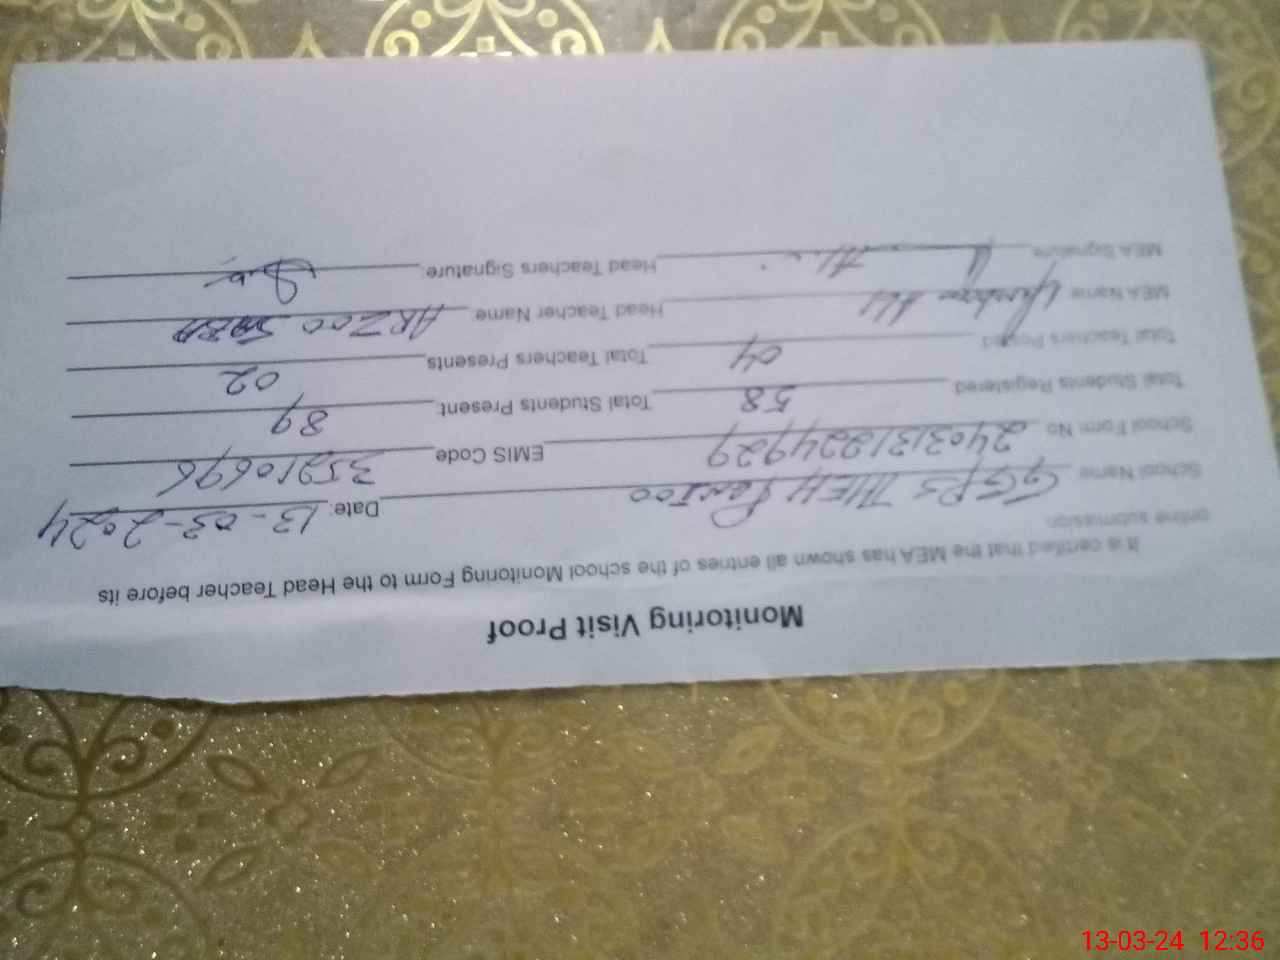 Monitoring Visit Proof
It is certified that the MEA has shown all entries of the school Monitoring Form to the Head Teacher before its
online submission
School Name GGPS THEH Date: 13-03-2024
School Form No EMIS Code 35210696
Total Students Registered 58 Total Students Present: 89
Total Teachers Posted 04 Total Teachers Presents 02
MEA Name Head Teacher Name: ARZOO SABA
MEA Signature Head Teachers Signature:
13-03-24 12:36